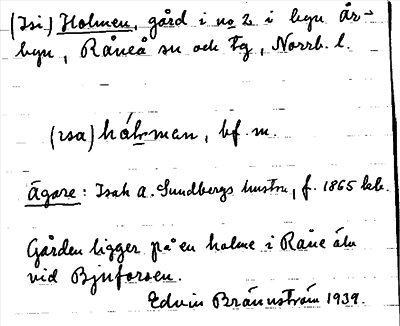 (Isi) Holmen, gård i no 2 i byn År-
byn, Råneå sn och tg, Norrb. l.
(isa) hólmen, bf. m.
Ägare: Isak A. Sundbergs hustru, f. 1865
Gården ligger på en holme i Råne älv
vid Bjnforsen.
Edvin Brännström 1939.